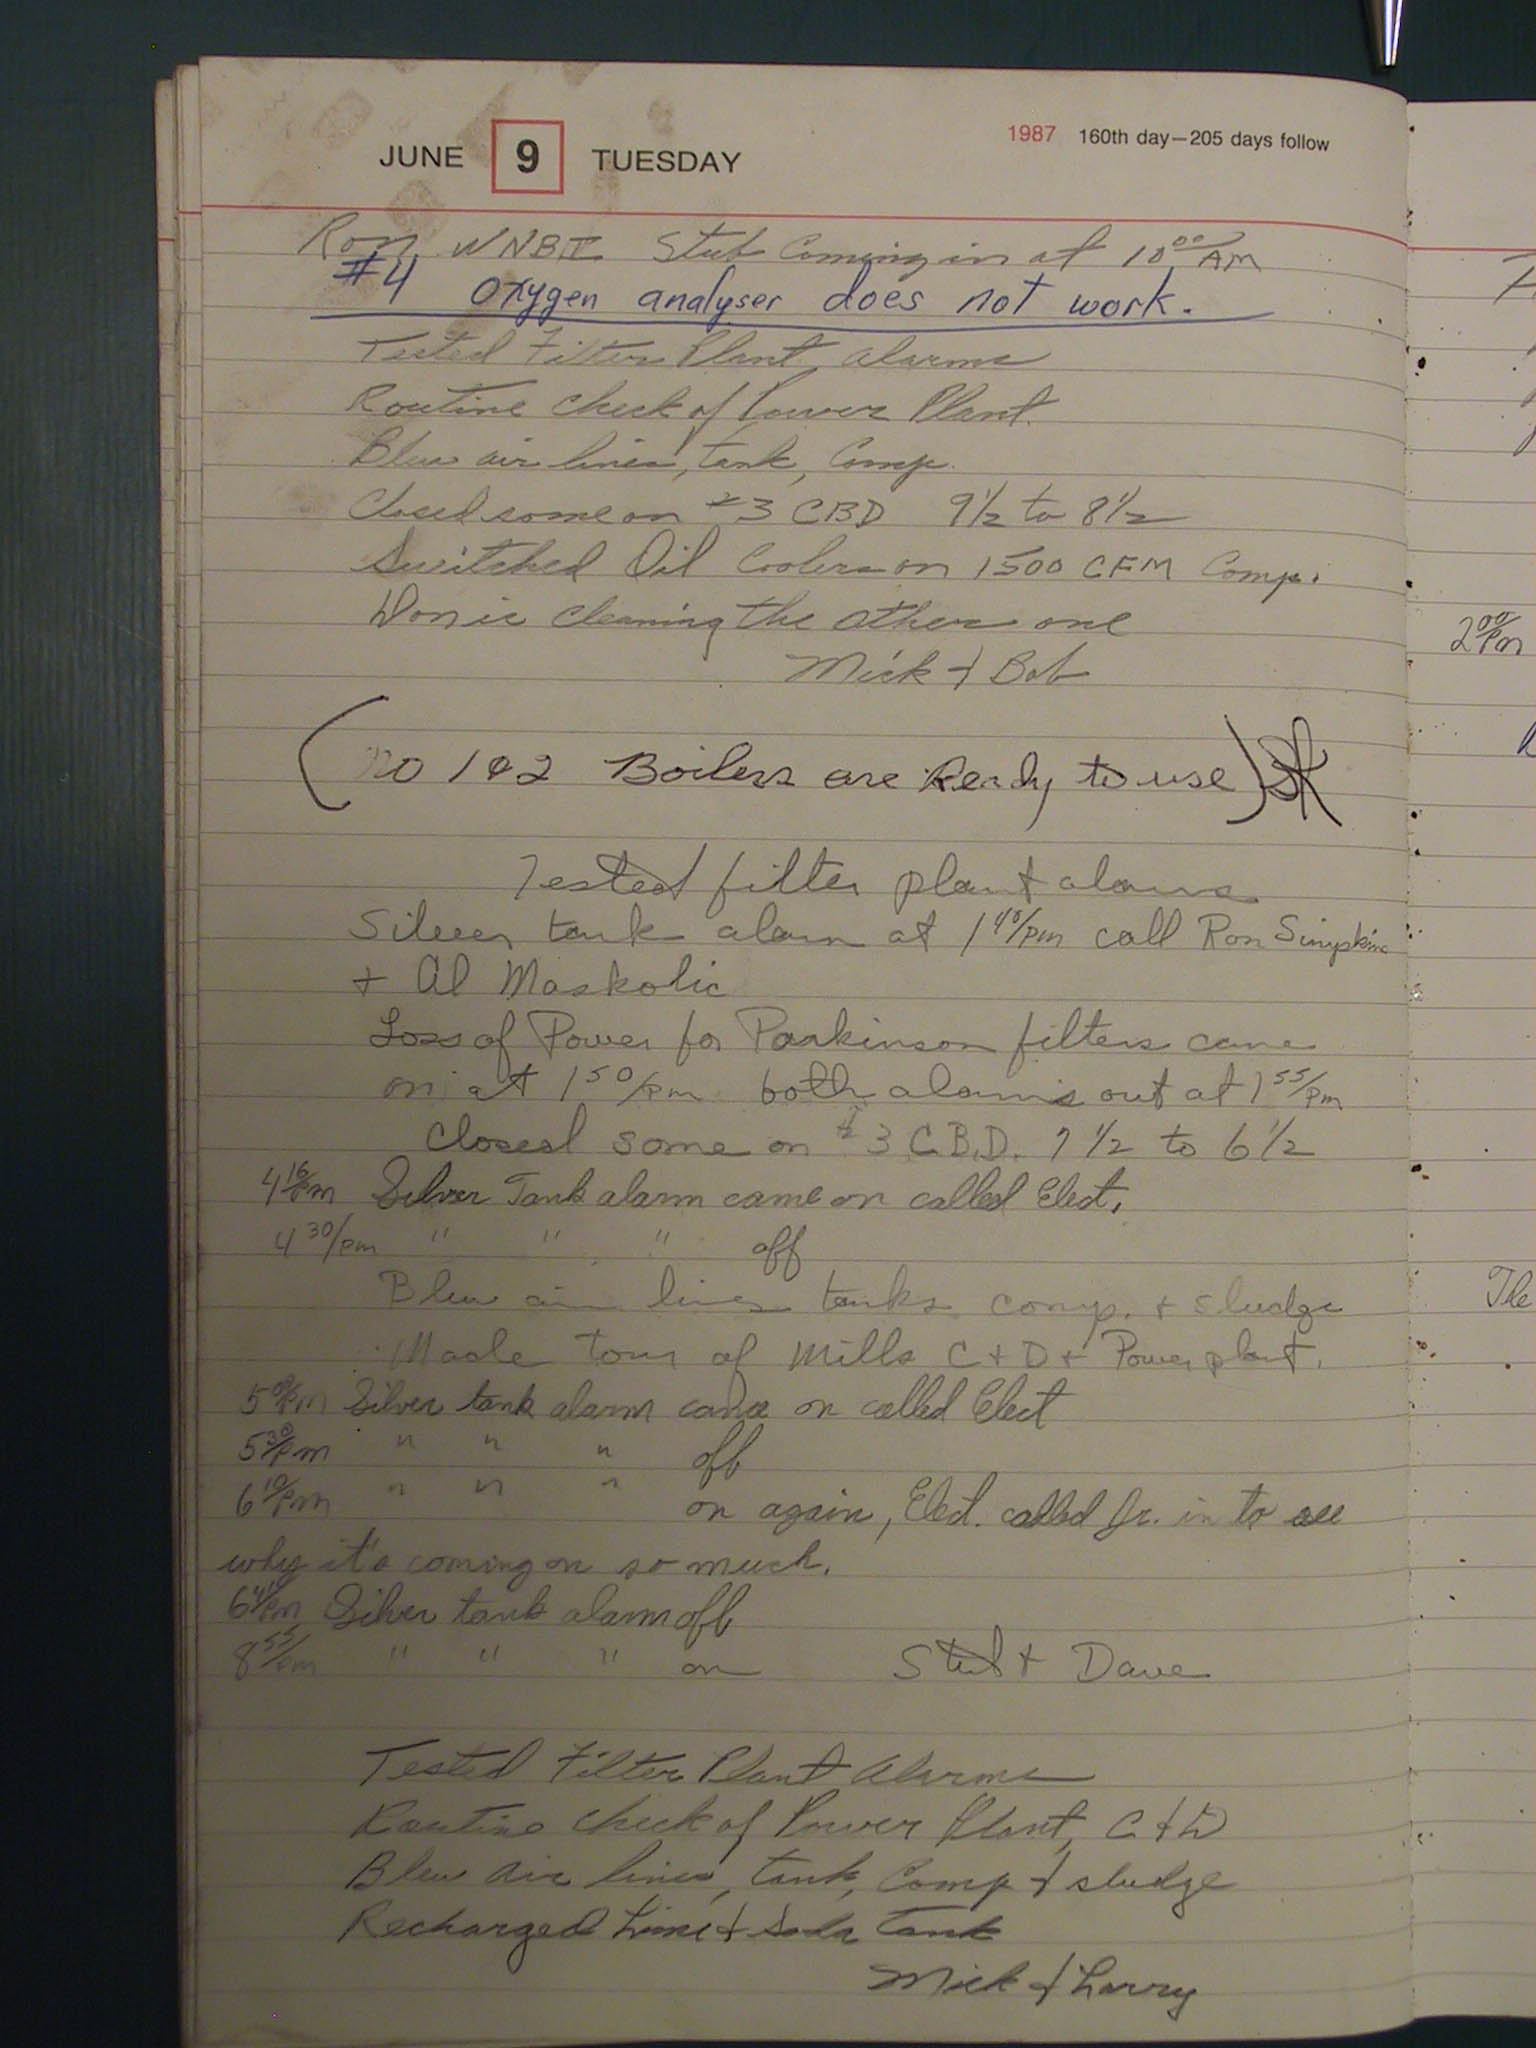 JUNE 9 TUESDAY 1987 160th day—205 days follow
Ron WNBIT Stub Coming in at 10 00/AM
#4 Oxygen analyser does not work.
Tested Filter Plant Alarms
Routine Check of Power Plant.
Blew air lines, tank, Comp.
Closed some on #3 CBD 9½ to 8½
Switched Oil Coolers on 1500 CFM Comp.
Donie Cleaning the other one
Mick & Bob
(no 1 & 2 Boilers are Ready to use) SK
Tested filter plant alarms
Silver tank alarm at 1 40/pm call Ron
+ Al Maskolic
Loss of Power for Parkinson filters came
on at 1 50/pm both alarms out at 1 55/pm
Closed some on #3 C.B.D. 7 ½ to 6 ½
4 16/pm Silver Tank alarm came on called Elect.
4 30/pm " " " off
Blew air lines tanks comp. + sludge
Made tour of Mills C + D + Power plant.
5 /pm Silver tank alarm came on called Elect
5 30/pm " " " off
6 10/pm " " " on again, Elect. called Jr. in to see
why it's coming on so much.
6 /pm Silver tank alarm off
8 55/pm " " " on Stub + Dave
Tested Filter Plant Alarms
Routine Check of Power Plant, C & D
Blew air lines, tank, Comp & sludge
Recharged Lime & Soda Tank
Mick & Larry
2 00/pm
The